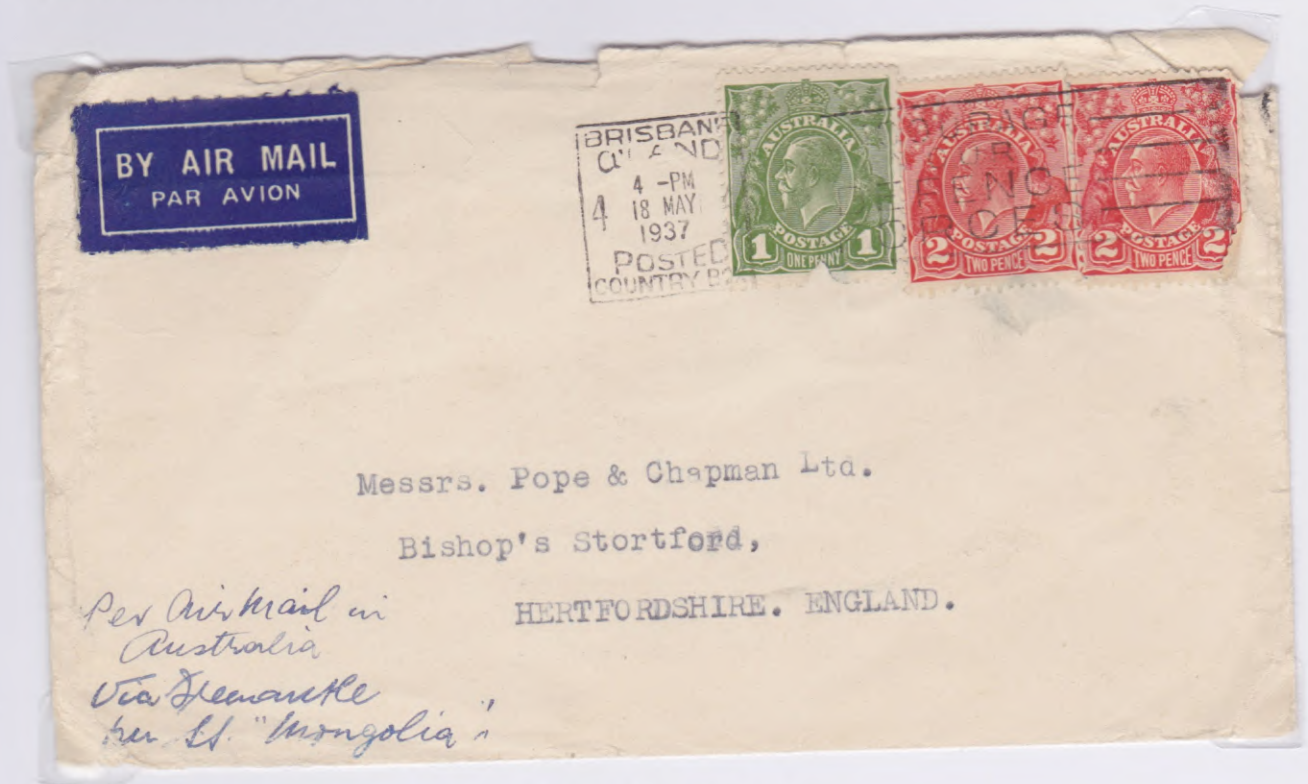 BY AIR MAIL
PAR AVION
BRISBANE
4 -PM
4 18 MAY
1937
POSTED
COUNTRY
AUSTRALIA
POSTAGE
1 ONE PENNY 1
AUSTRALIA
POSTAGE
2 TWO PENCE 2
AUSTRALIA
POSTAGE
2 TWO PENCE 2
Messrs. Pope & Chapman Ltd.
Bishop's Stortford,
HERTFORDSHIRE. ENGLAND.
Per Air Mail in
Australia
Via Fremantle
per SS. "Mongolia"